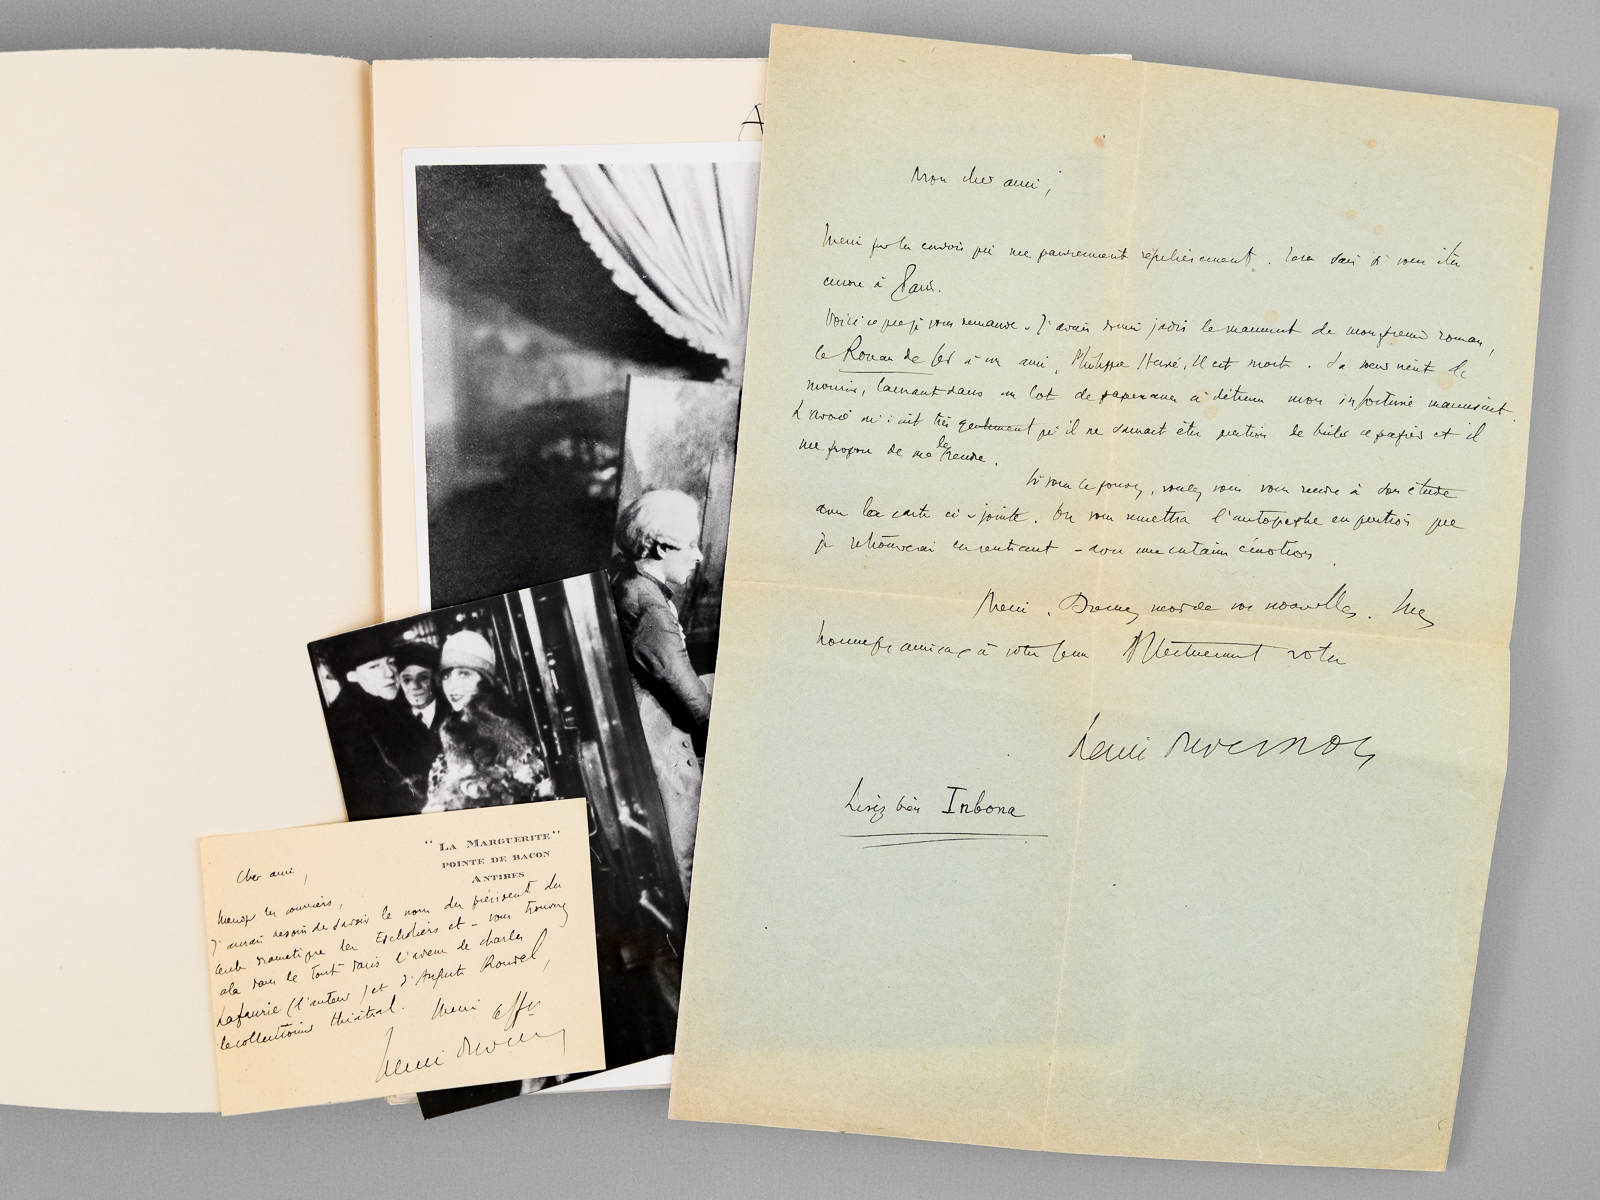 A
Mon cher ami,
Merci pour les envois qui me parviennent régulièrement. Vous êtes
encore à Paris.
Voici ce que je vous demande. J'avais donné jadis le manuscrit de mon premier roman,
le Roman de à un ami, Philippe Hervé, il est mort. Sa vient de
mourir, laissant dans un lot de mon infortuné manuscrit.
L'avoué m'écrit très gentiment qu'il ne saurait être question de brûler ce papier et il
me propose de me le rendre.
Si vous le pouvez, voulez vous vous rendre à son étude
avec la carte ci-jointe. On vous remettra l'autographe en question que
je retrouverai en rentrant - avec une certaine émotion.
Merci. Donnez moi de vos nouvelles. Mes
hommages amicaux à votre femme Affectueusement votre
Henri Duvernois
Lisez bien Inbona
"La Marguerite"
Pointe de Bacon
Antibes
Cher ami,
J'aurais besoin de savoir le nom du président du
cercle dramatique les Escholiers et - vous trouverez
cela dans le Tout Paris l'adresse de Charles
Lafaurie (l'auteur) et d'Auguste Rondel,
le collectionneur théâtral. Merci Aff
Henri Duvernois